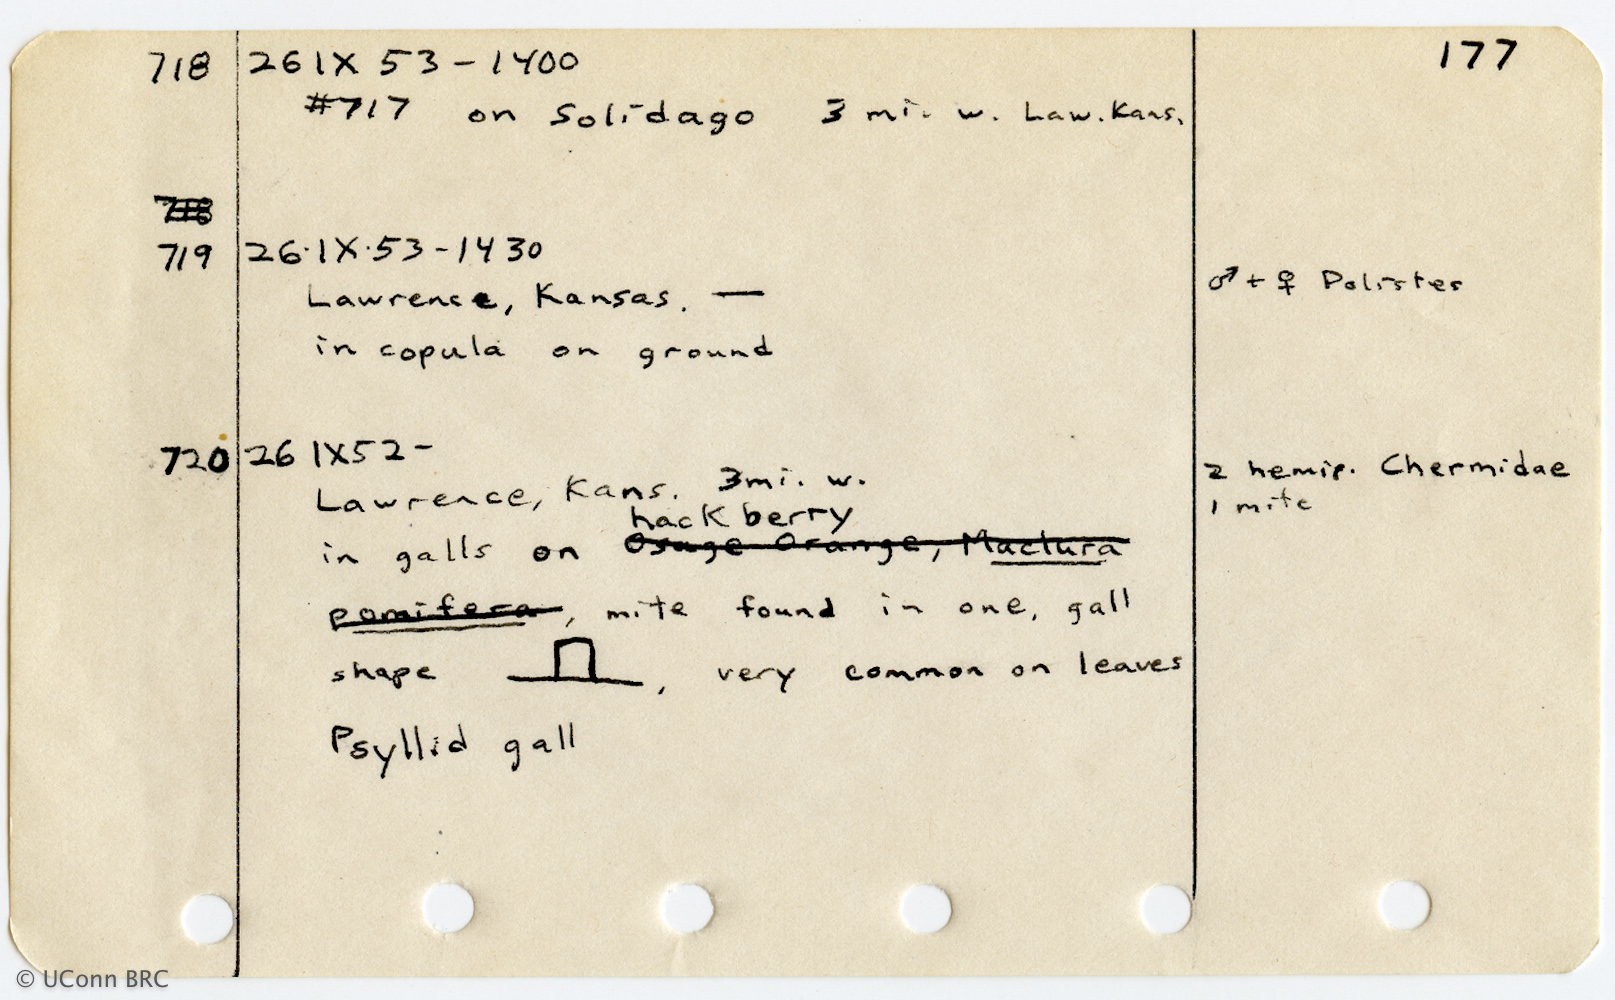 177
718 26 IX 53 - 1400
#717 on Solidago 3 mi. w. Law. Kans.
718
719 26·IX·53 - 1430
Lawrence, Kansas. —
♂ + ♀ Polistes
in copula on ground
720 26 IX 52 -
2 hemip. Chermidae
Lawrence, Kans. 3mi. w.
1 mite
hackberry
in galls on Osage Orange, Maclura
pomifera, mite found in one, gall
shape , very common on leaves
Psyllid gall
© UConn BRC